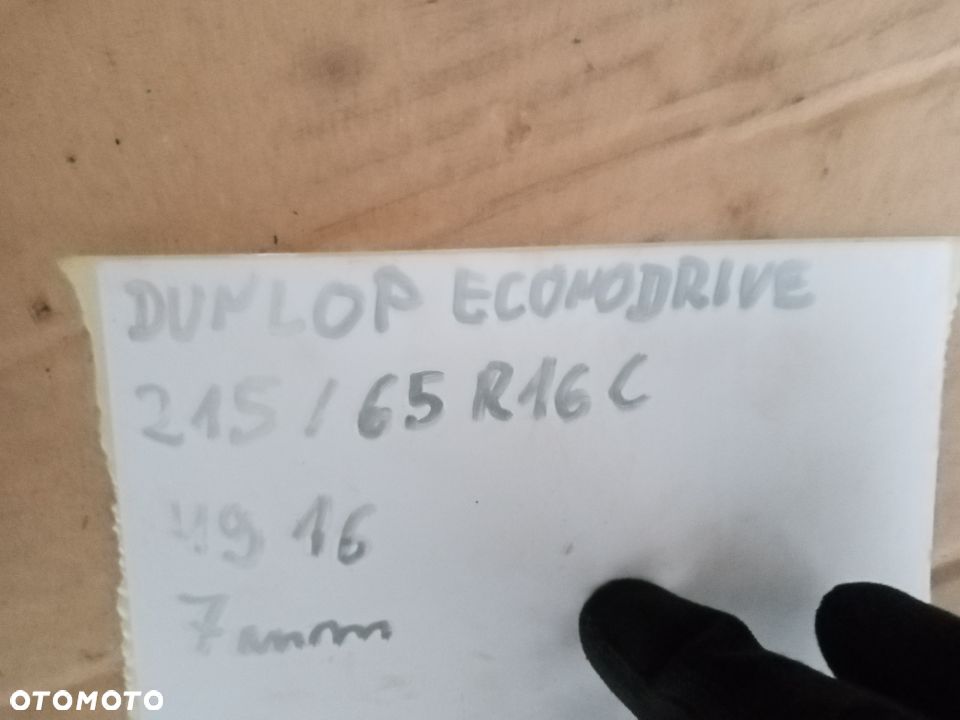 DUNLOP ECONODRIVE
215/65 R16C
4916
7mm
OTOMOTO